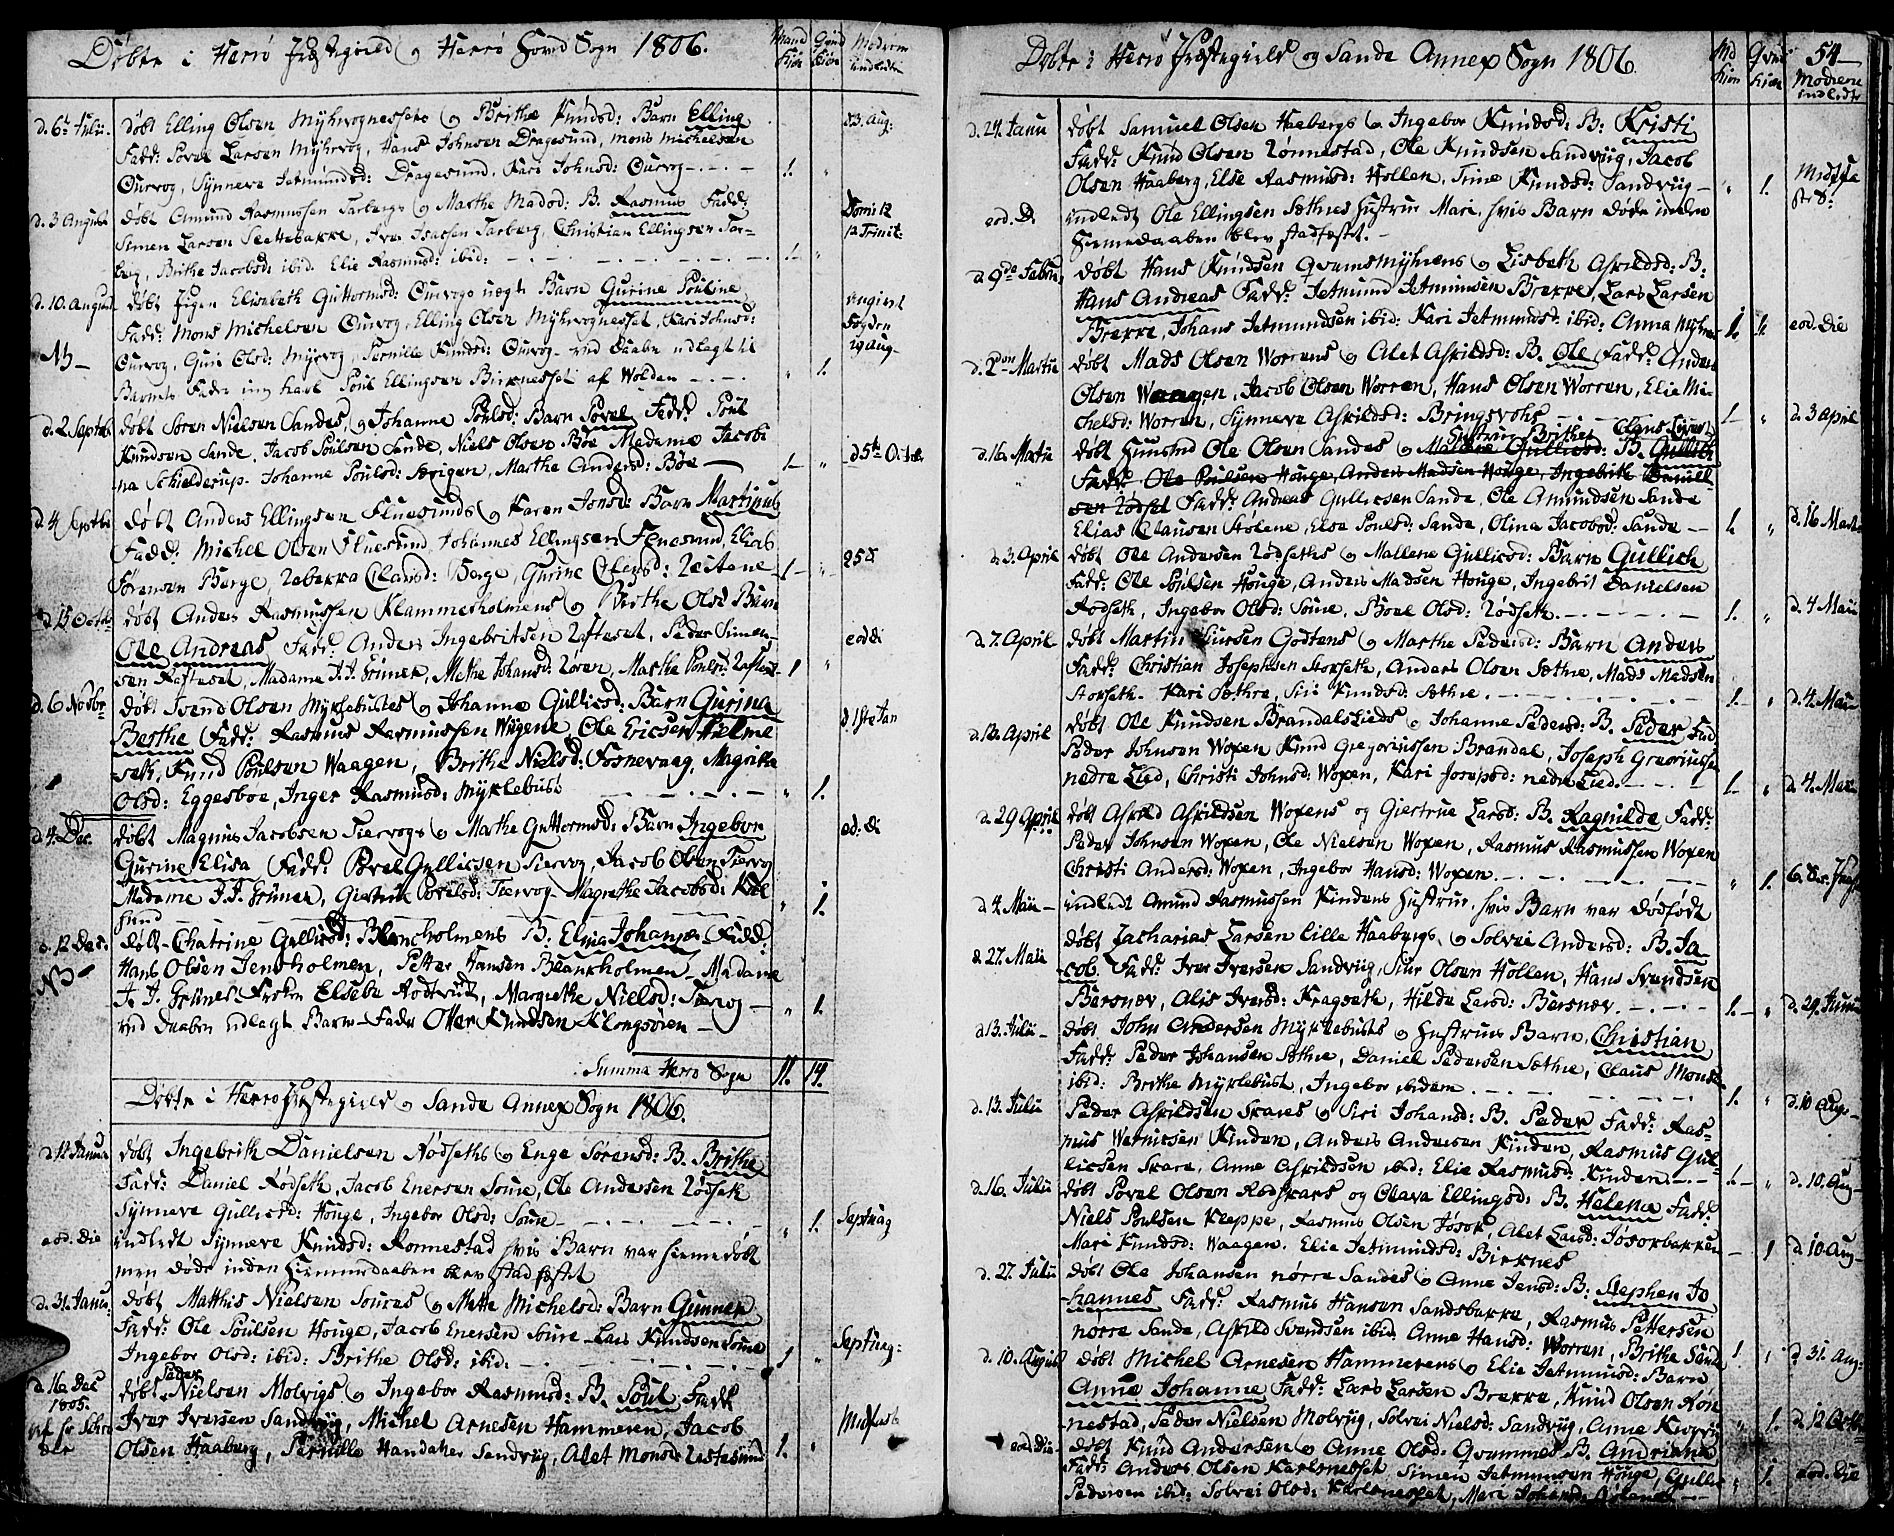 Døbte i Herrø Præstegield og Herrø Hoved Sogn 1806.
Mand Kiøn
Qvind Kiøn
Modrene indledte
d. 6te Julii
døbt Elling Olsen Myhrvognessets og Brithe Knudsd: Barn Elling
d 3. Aug:
Fadd: Povel Larsen Myhrvog, Hans Johnsen Dragesund, Mons Michelsen
Ourvog, Synneve Jetmundsd: Dragesund, Kari Johnsd: Ourvog
1.
d. 3 August
døbt Amund Rasmussen Tarbergs og Marthe Madsd: B. Rasmus Fadd:
Domi 12 p Trinit:
Simen Larsen Sættebakke, Iver Isacsen Tarberg, Christian Ellingsen Tar-
berg, Brithe Jacobsd: ibid. Elie Rasmusd: ibid:
1.
d. 10. August
døbt Pigen Elisabeth Guttormsd: Ourvogs uægte Barn Gurine Pouline
angivet Fogden 19 Aug
Fadd: Mons Michelsen Ourvog, Elling Olsen Myhrvognesset, Kari Johnsd:
NB
Ourvog, Guri Olsd: Myrvog, Pernille Knudsd: Ourvog ved Daaben udlagt til
Barnets Fader ung karl Poul Ellingsen Birknesset af Wolden
1.
d. 2 Septeb
døbt Søren Nielsen Sandes, og Johanne Poulsd: Barn Povel Fadd: Poul
Knudsen Sande, Jacob Poulsen Sande, Niels Olsen Bøe Madame Jacobi-
d 5te Octob
na Schielderup. Johanne Poulsd: Marthe Andersd: Bøe
1
d 4 Septbr
døbt Anders Ellingsen Fluesunds og Karen Jonsd: Barn Martinus
Fadd: Michel Olsen Fluesund, Johannes Ellingsen Elias
Sørensen Berge, Rebekka Clausd: Berge, Gurine Olsd:
1
d 15 Octob
døbt Anders Rasmussen Klammersholmens og Berthe Olsd Barn
Ole Andreas Fadd: Anders Ingebritsen Raftesæt, Peder Simen-
eod di
sen Raftesæt, Madame J. J. Grüner, Methe Johansd: Marthe Poulsd:
1
d. 6 Novbr
døbt Svend Olsen Myklebustes og Johanne Gullicsd: Barn Gurina
Berthe Fadd: Rasmus Rasmussen Wiigene, Ole Ericsen Hielme
d 1ste Jan
seth, Knud Poulsen Waagen, Brithe Nielsd: Fosnevaag, Magrethe
Olsd: Eggesboe, Inger Rasmusd: Myklebust
1.
d 4. Dec.
døbt Magnus Jacobsen Tiervogs og Marthe Guttormsd: Barn Ingebor
eod: di
Gurine Elisa Fadd: Povel Gullicsen Tiervog, Jacob Olsen Tiervog
Madame J. J. Grüner, Giertrue Povelsd: Tiervog Magrethe Jacobsd:
1.
d. 12 Dec.
døbt Chatrine Gullicsd: Blancholmens B. Johanne Fadd:
NB
Hans Olsen Jensholmen, Petter Hansen Blankholmen Madame
J. J. Grüner Elsebe Margrethe Nielsd: Tiervog
ved daaben udlagt Barne-Fader Knudsen
1.
Summa Herrø Sogn 11. 14.
Døbte i Herrø Præstegield og Sande Annex Sogn 1806.
d 12 Janua
døbt Ingebrith Danielsen Rødseths og Enge Sørensd: B. Brithe
Fadd: Daniel Rødseth, Jacob Enersen Soure, Ole Andersen Rødseth
Synneve Gullicsd: Houge, Ingebor Olsd: Soure
1.
Septuag
eod. die
indledt Synneve Knudsd: Rønnestad hvis Barn var hiemedøbt
men døde inden Hiemmedaaben blev stadfæstet
d. 31. Janu:
døbt Matthis Nielsen Soures og Mette Michelsd: Barn Gunner
Fadd: Ole Poulsen Houge, Jacob Enersen Soure Lars Knudsen Soure
Septuag:
Ingebor Olsd: ibid: Brithe Olsd: ibid.
1
d 16 Dec 1805.
døbt Peder Nielsen Molvigs og Ingebor Rasmusd: B. Poul Fadd:
Iver Iversen Sandvüg, Michel Arnesen Hammeren, Jacob
Olsen Haaberg, Pernille Sandvüg, Alet Monsd
1.

Døbte i Herrø Præstegield og Sande Annex Sogn 1806.
Md Kiøn
Qvind Kiøn
54
Modrene indledte
d. 24. Janu
døbt Samuel Olsen Haabergs og Ingebor Knudsd: B: Kristi
Fadd: Knud Olsen Rønnestad, Ole Knudsen Sandvüg, Jacob
Olsen Haaberg, Else Rasmusd: Hollen, Trine Knudsd: Sandvüg
1.
eod. D.
indledt Ole Ellingsen Sæthres Hustrue Mari, hvis Barn døde inden
Hiemedaaben blev stadfæstet.
d 9de Febru
døbt Hans Knudsen Qvamsmyhrens og Lisbeth Askildsd: B:
Hans Andreas Fadd: Jetmund Jetmundsen Brekke, Lars Larsen
Brekke, Johans Jetmundsen ibid: Kari Jetmundsd: ibid: Anna
1.
eod: die
d. 2den Martii
døbt Mads Olsen Worrens og Alet Askildsd: B. Ole Fadd: Anders
Olsen Waagen, Jacob Olsen Worren, Hans Olsen Worren, Elie Mi-
chelsd: Worren, Synneve Askildsd:
1
d. 3 April
d. 16. Martii
døbt Huusmd Ole Olsen Sandes og Hustrue Brithe B. Claus
Fadd: Ole Poulsen Houge, Anders Madsen Houge, Ingebrit Daniel
sen Rødset Fadd: Andreas Gullicsen Sande, Ole Amundsen Sande
Elias Clausen Stølene, Else Poulsd: Sande, Olina Jacobsd: Sande
1.
d. 16 Martii
d. 3. April
døbt Ole Andersen Rødseths og Mallene Gullicsd: Barn Gullich
Fadd: Ole Poulsen Houge, Anders Madsen Houge, Ingebrit Danielsen
Rødseth, Ingebor Olsd: Soure, Boel Olsd: Rødseth
1.
d. 4 Maii
d. 7. April
døbt Martin Siursen Godtens og Marthe Pedersd: Barn Anders
Fadd: Christian Josephsen Storseth, Anders Olsen Sæthre, Mads Madsen
Storseth. Kari Sæthre, Siri Knudsd: Sæthre.
1.
d. 4. Maii
d. 13. April
døbt Ole Knudsen Brandalslieds og Johanne Pedersd: B. Peder Fad
Peder Johnsen Woxen Knud Gregoriussen Brandal, Joseph Gregoriussen
nedre Lied, Christi Johnsd: Woxen, Kari Josepsd: nedre Lied.
1.
d. 4. Maii
d. 29 April
døbt Askild Askildsen Woxens og Giertrue Larsd: B. Ragnilde Fadd:
Peder Johnsen Woxen, Ole Nielsen Woxen, Rasmus Rasmussen Woxen
Christi Andersd: Woxen, Ingebor Hansd: Woxen.
1.
d. 4. Maii
indledt Amund Rasmussen Kindens Hustrue, hvis Barn var dødfødt
d. 27. Maii
døbt Zacharias Larsen Lille Haabergs, og Solvei Andersd: B. Ja-
cob Fadd: Iver Iversen Sandvüg, Siur Olsen Hollen, Hans Svendsen
Bersnev, Alis Iversd: Kragseth, Hilda Larsd: Bersnev.
1.
d. 29. Junii
d 13. Julii
døbt John Andersen Myklebusts og Hustrues Barn, Christian
Fadd: Peder Johansen Sæthre, Daniel Pedersen Sæthre, Claus Monse
ibid: Brithe Myklebust, Ingebor ibidem
1.
d. 10 Aug
d. 13. Julii
Peder Askildsen Skares og Siri Johansd: B. Peder Fadd: Ras-
mus Wernicsen Kinden, Anders Andersen Kinden, Rasmus Gul-
licsen Skare, Anne Askildsen ibid: Elie Rasmusd: Kinden
1
d. 10. Aug
d. 16. Julii
døbt Povel Olsen Rødskars og Olava Ellingsd: B. Helena Fadd:
Niels Poulsen Kleppe, Rasmus Olsen Jøsok, Alet Larsd: Jøsokbakken
Mari Knudsd: Waagen. Elie Jetmundsd: Birknes
1
d 10 Aug
d. 27. Julii
døbt Ole Johansen nørre Sandes og Anne Jensd: B: Stephen Jo
hannes Fadd: Rasmus Hansen Sandsbakke, Rasmus Pettersen
nørre Sande, Askild Svendsen ibid. Anne Hansd: Worren, Brithe Sande
1
d 31. Aug:
d. 10. August
døbt Michel Arnesen Hammerens og Elie Jetmundsd: Barn
Anne Johanne Fadd: Lars Larsen Brekke, Knud Olsen Røn
nestad, Peder Nielsen Molvüg, Solvei Nielsd: Sandvüg, Anne
1.
d 12 Octb
eod: die
døbt Knud Andersen og Anne Olsd: Qvammes B. Andriana
Fadd: Anders Olsen Karlsnesset, Simen Jetmundsen Houge, Gullic
Pedersen ibid: Solvei Olsd: Karlsnesset, Mari Johansd:
1.
eod. die